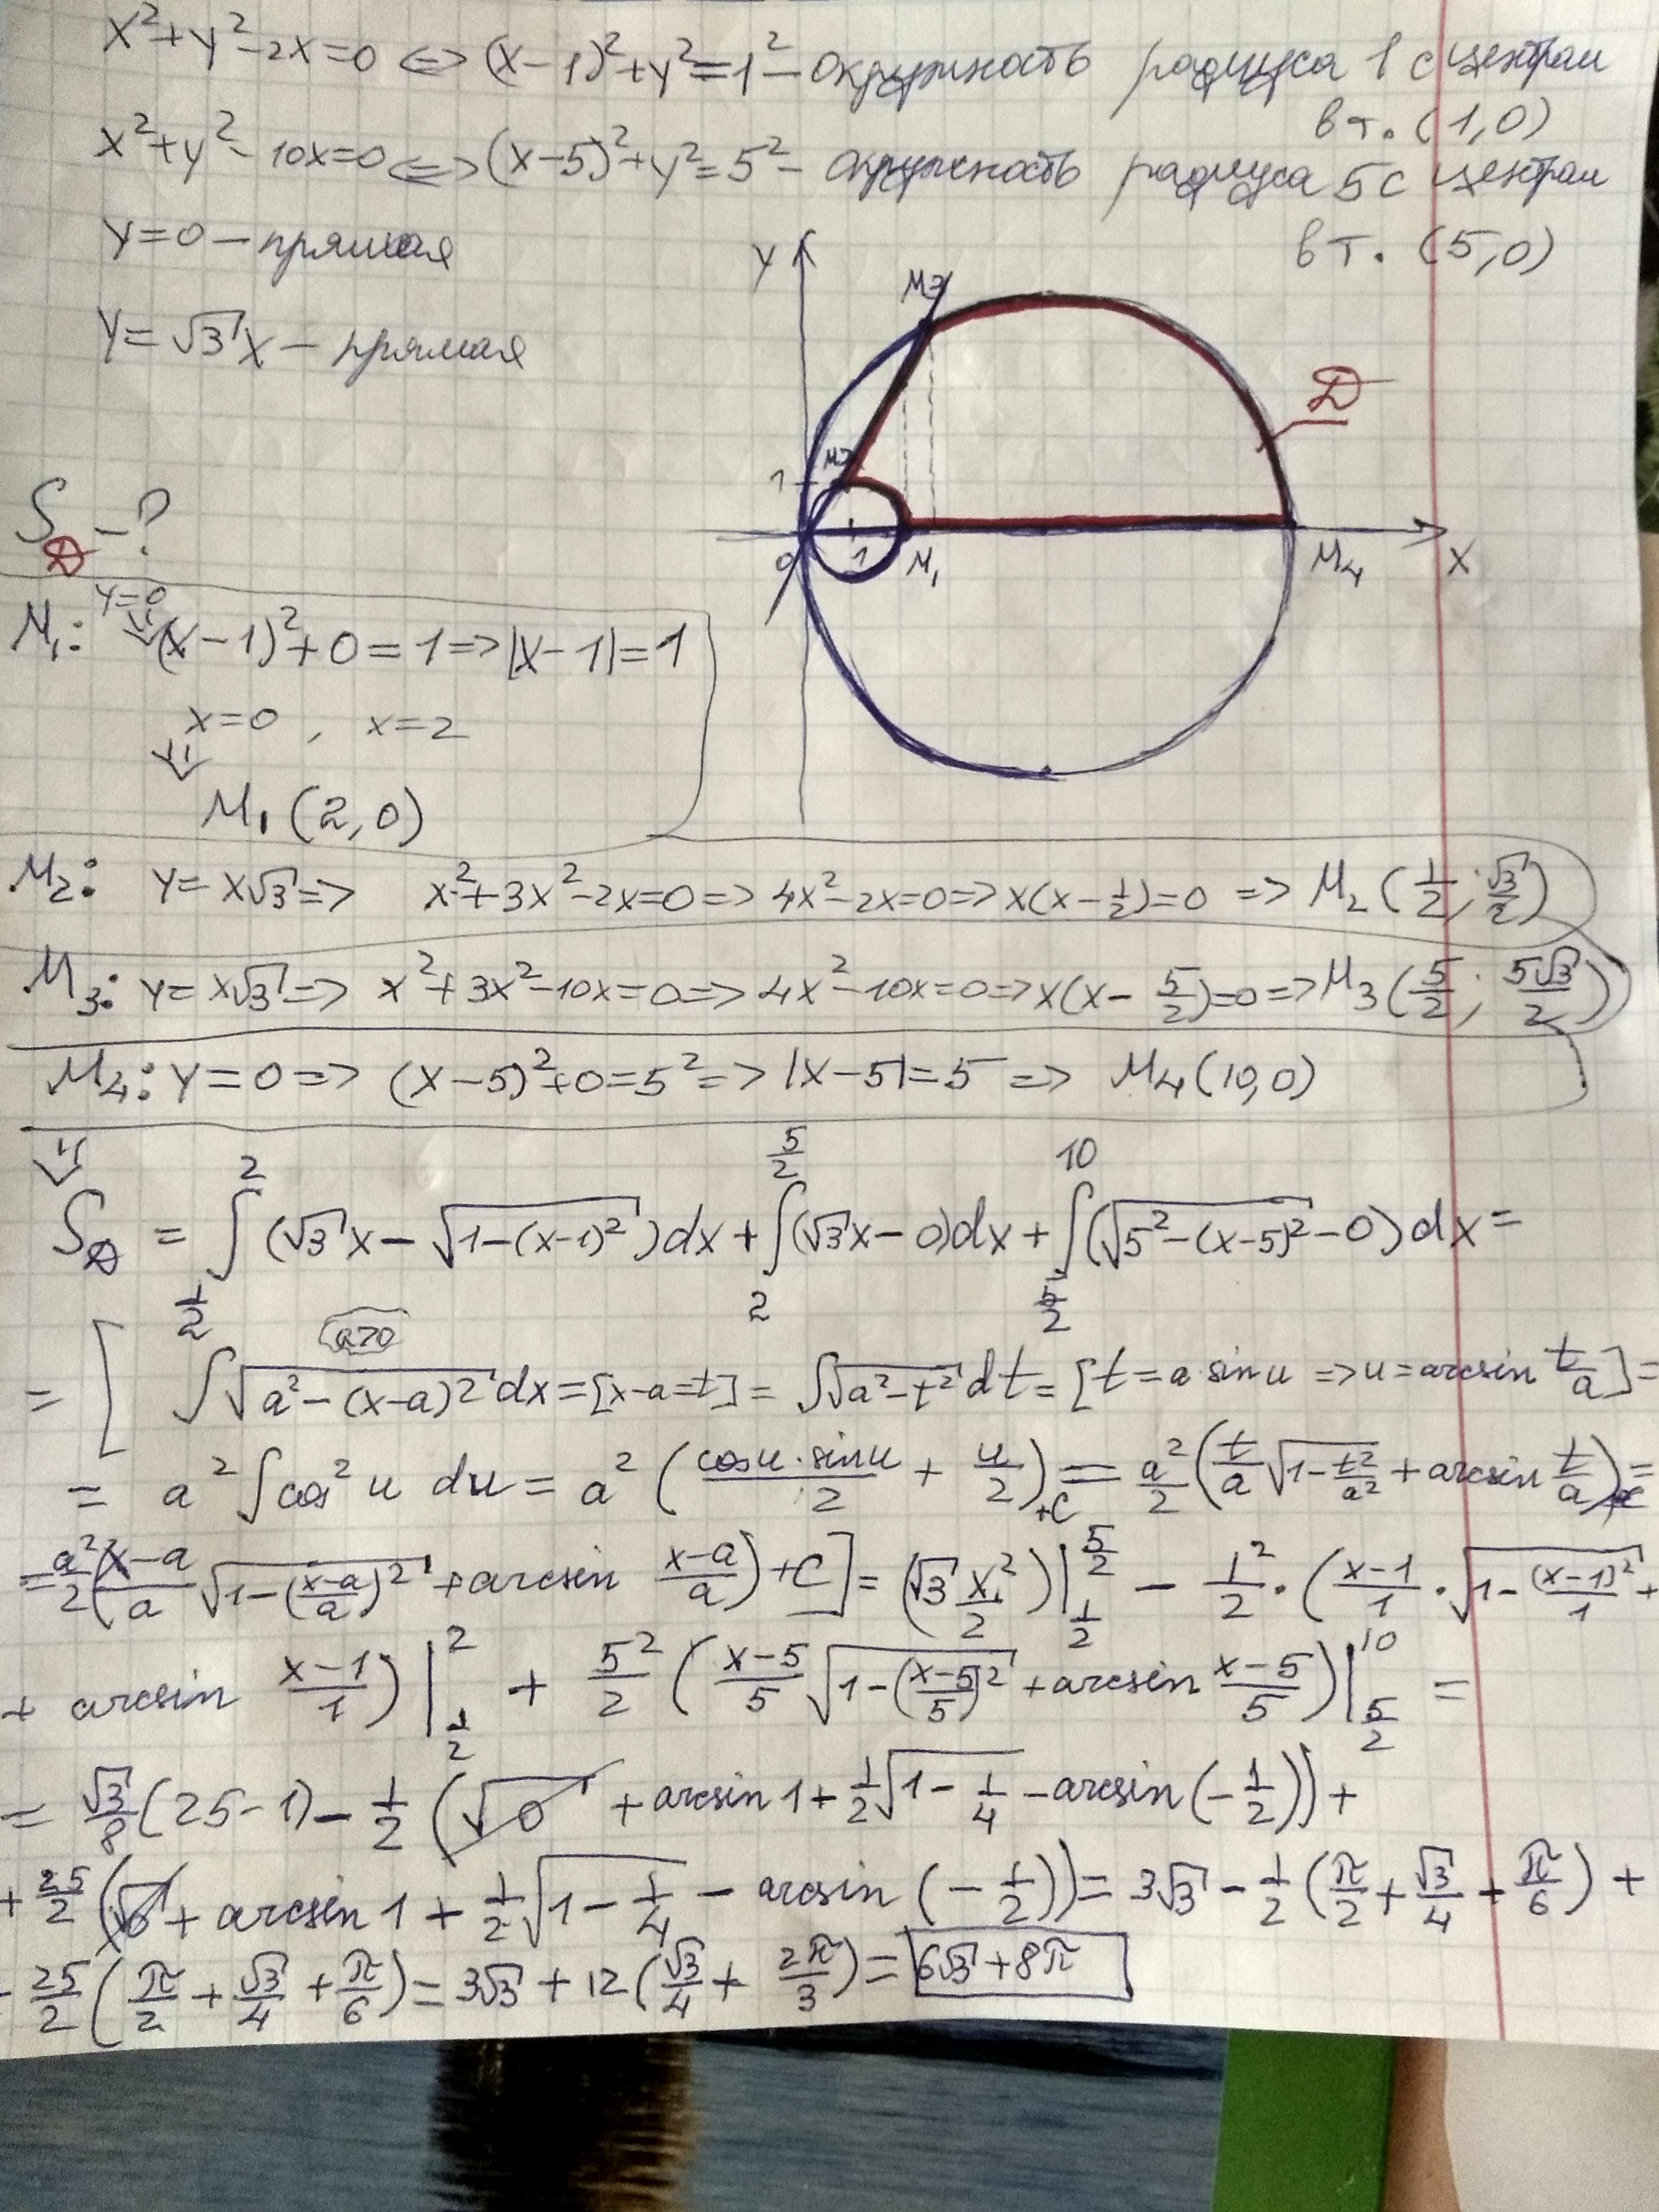 x²+y²-2x=0 <=> (x-1)²+y²=1² - окружность радиуса 1 с центром
в т. (1,0)
x²+y²-10x=0 <=> (x-5)²+y²=5² - окружность радиуса 5 с центром
в т. (5,0)
y=0 - прямая
y=√3x - прямая
Y
M3
D
M2
1
0
1
M₁
M4
X
S_D - ?
M₁: y=0 => (x-1)²+0=1 => |x-1|=1
x=0, x=2
=> M₁(2,0)
M₂: y=x√3 => x²+3x²-2x=0 => 4x²-2x=0 => x(x-1/2)=0 => M₂(1/2; √3/2)
M₃: y=x√3 => x²+3x²-10x=0 => 4x²-10x=0 => x(x-5/2)=0 => M₃(5/2; 5√3/2)
M₄: y=0 => (x-5)²+0=5² => |x-5|=5 => M₄(10,0)
=> S_D = ∫_{1/2}^{2} (√3x - √(1-(x-1)²))dx + ∫_{2}^{5/2} (√3x-0)dx + ∫_{5/2}^{10} (√(5²-(x-5)²)-0)dx =
a>0
= [ ∫√(a²-(x-a)²)dx = [x-a=t] = ∫√(a²-t²)dt = [t=a·sinu => u=arcsin t/a] =
= a²∫cos²u du = a²(cosu·sinu/2 + u/2)+C = a²/2 (t/a √(1-t²/a²) + arcsin t/a)+C =
= a²/2 (x-a/a √(1-(x-a/a)²) + arcsin x-a/a)+C] = (√3 x²/2)|_{1/2}^{5/2} - 1²/2·(x-1/1·√(1-(x-1)²/1) +
+ arcsin x-1/1)|_{1/2}^{2} + 5²/2 (x-5/5 √(1-(x-5/5)²) + arcsin x-5/5)|_{5/2}^{10} =
= √3/8(25-1) - 1/2(√0 + arcsin1 + 1/2√(1-1/4) - arcsin(-1/2)) +
+ 25/2(√0 + arcsin1 + 1/2√(1-1/4) - arcsin(-1/2)) = 3√3 - 1/2(π/2 + √3/4 + π/6) +
- 25/2(π/2 + √3/4 + π/6) = 3√3 + 12(√3/4 + 2π/3) = 6√3+8π